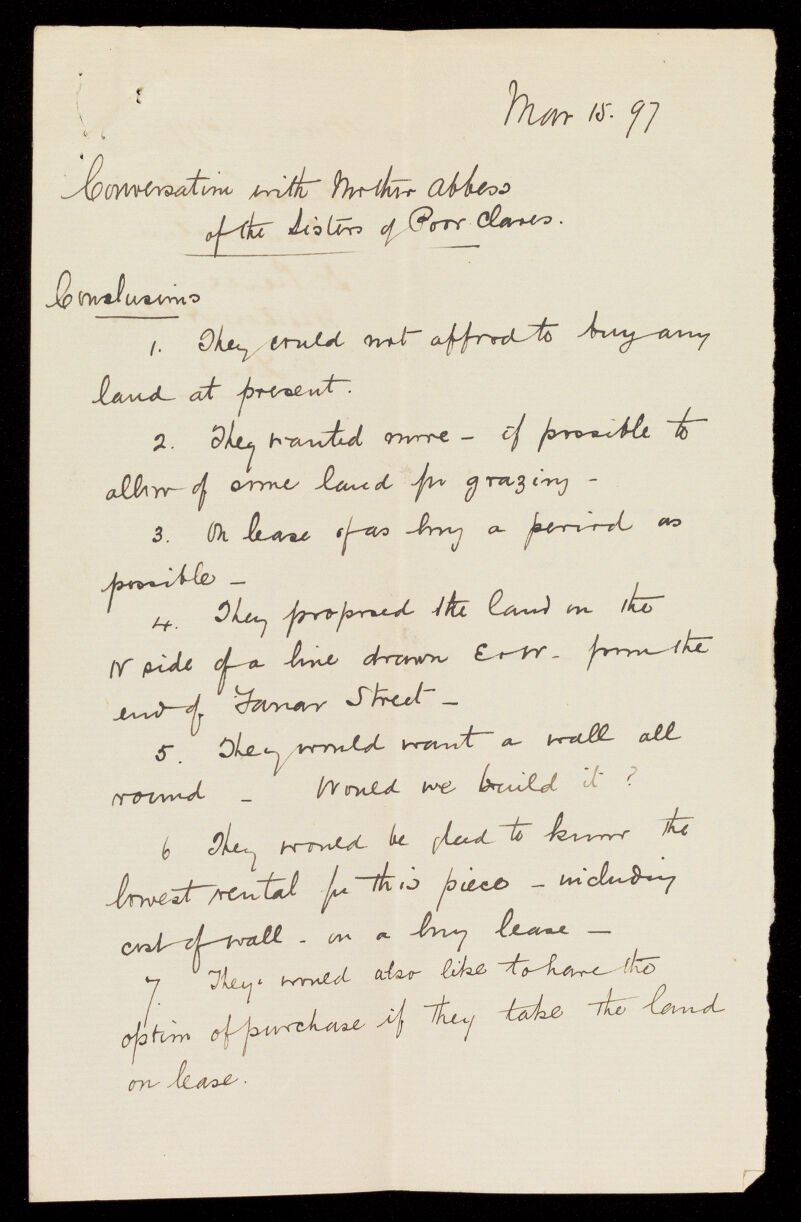 Mar 15. 97
Conversation with Mother Abbess
of the Sisters of Poor Clares.
Conclusions
1. They could not afford to buy any
land at present.
2. They wanted more - if possible to
allow of some land for grazing -
3. On lease of as long a period as
possible -
4. They proposed the land on the
N side of a line drawn E & W - from the
end of Street -
5. They would want a wall all
round - Would we build it ?
6 They would be glad to know the
lowest rental for this piece - including
cost of wall - on a long lease -
7. They would also like to have the
option of purchase if they take the land
on lease.